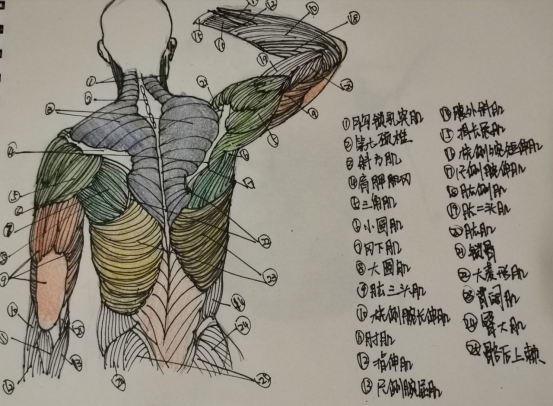 ①胸锁乳突肌
②第七颈椎
③斜方肌
④肩胛冈
⑤三角肌
⑥小圆肌
⑦冈下肌
⑧大圆肌
⑨肱三头肌
⑩桡侧腕长伸肌
⑪肘肌
⑫指伸肌
⑬尺侧腕屈肌
⑭腹外斜肌
⑮指长展肌
⑯桡侧腕短伸肌
⑰尺侧腕伸肌
⑱肱侧肌
⑲肱二头肌
⑳肱肌
㉑锁骨
㉒大菱形肌
㉓背阔肌
㉔臀大肌
㉕髂后上棘